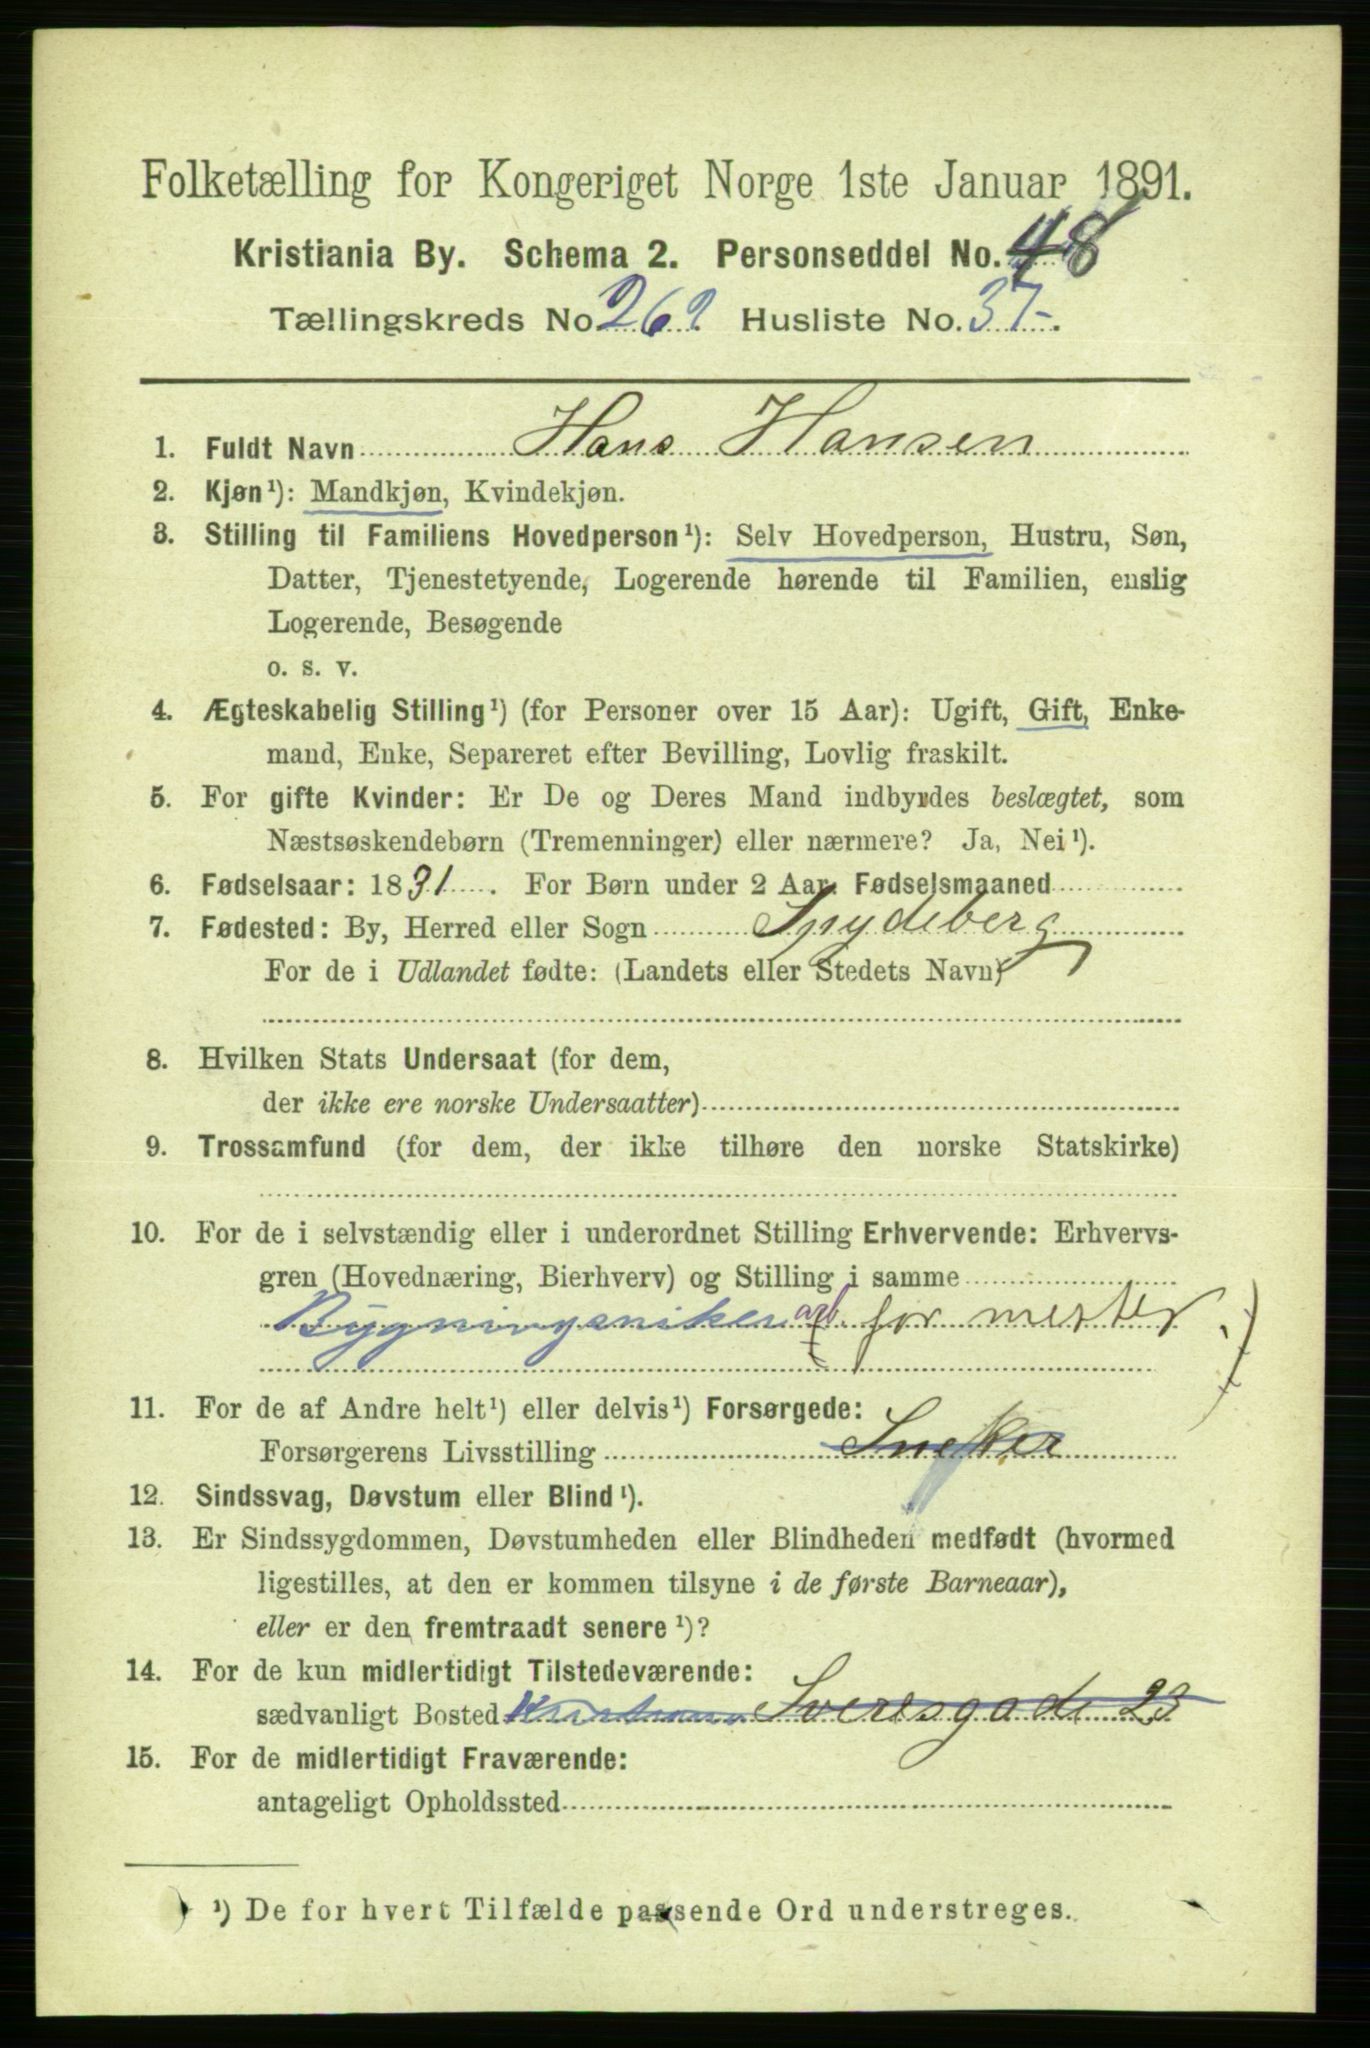 Folketælling for Kongeriget Norge 1ste Januar 1891.
Kristiania By. Schema 2. Personseddel No. 48
Tællingskreds No 262. Husliste No. 37-.
1. Fuldt Navn Hans Hansen
2. Kjøn¹): Mandkjøn, Kvindekjøn.
3. Stilling til Familiens Hovedperson¹): Selv Hovedperson, Hustru, Søn,
Datter, Tjenestetyende, Logerende hørende til Familien, enslig
Logerende, Besøgende
o. s. v.
4. Ægteskabelig Stilling¹) (for Personer over 15 Aar): Ugift, Gift, Enke-
mand, Enke, Separeret efter Bevilling, Lovlig fraskilt.
5. For gifte Kvinder: Er De og Deres Mand indbyrdes beslægtet, som
Næstsøskendebørn (Tremenninger) eller nærmere? Ja, Nei¹).
6. Fødselsaar: 1831. For Børn under 2 Aar: Fødselsmaaned
7. Fødested: By, Herred eller Sogn Spydeberg
For de i Udlandet fødte: (Landets eller Stedets Navn)
8. Hvilken Stats Undersaat (for dem,
der ikke ere norske Undersaatter)
9. Trossamfund (for dem, der ikke tilhøre den norske Statskirke)
10. For de i selvstændig eller i underordnet Stilling Erhvervende: Erhvervs-
gren (Hovednæring, Bierhverv) og Stilling i samme
Bygningsniker arb. for mester
11. For de af Andre helt¹) eller delvis¹) Forsørgede:
Forsørgerens Livsstilling Sneker
12. Sindssvag, Døvstum eller Blind¹).
13. Er Sindssygdommen, Døvstumheden eller Blindheden medfødt (hvormed
ligestilles, at den er kommen tilsyne i de første Barneaar),
eller er den fremtraadt senere¹)?
14. For de kun midlertidigt Tilstedeværende:
sædvanligt Bosted Sveresgade 23
15. For de midlertidigt Fraværende:
antageligt Opholdssted
¹) De for hvert Tilfælde passende Ord understreges.